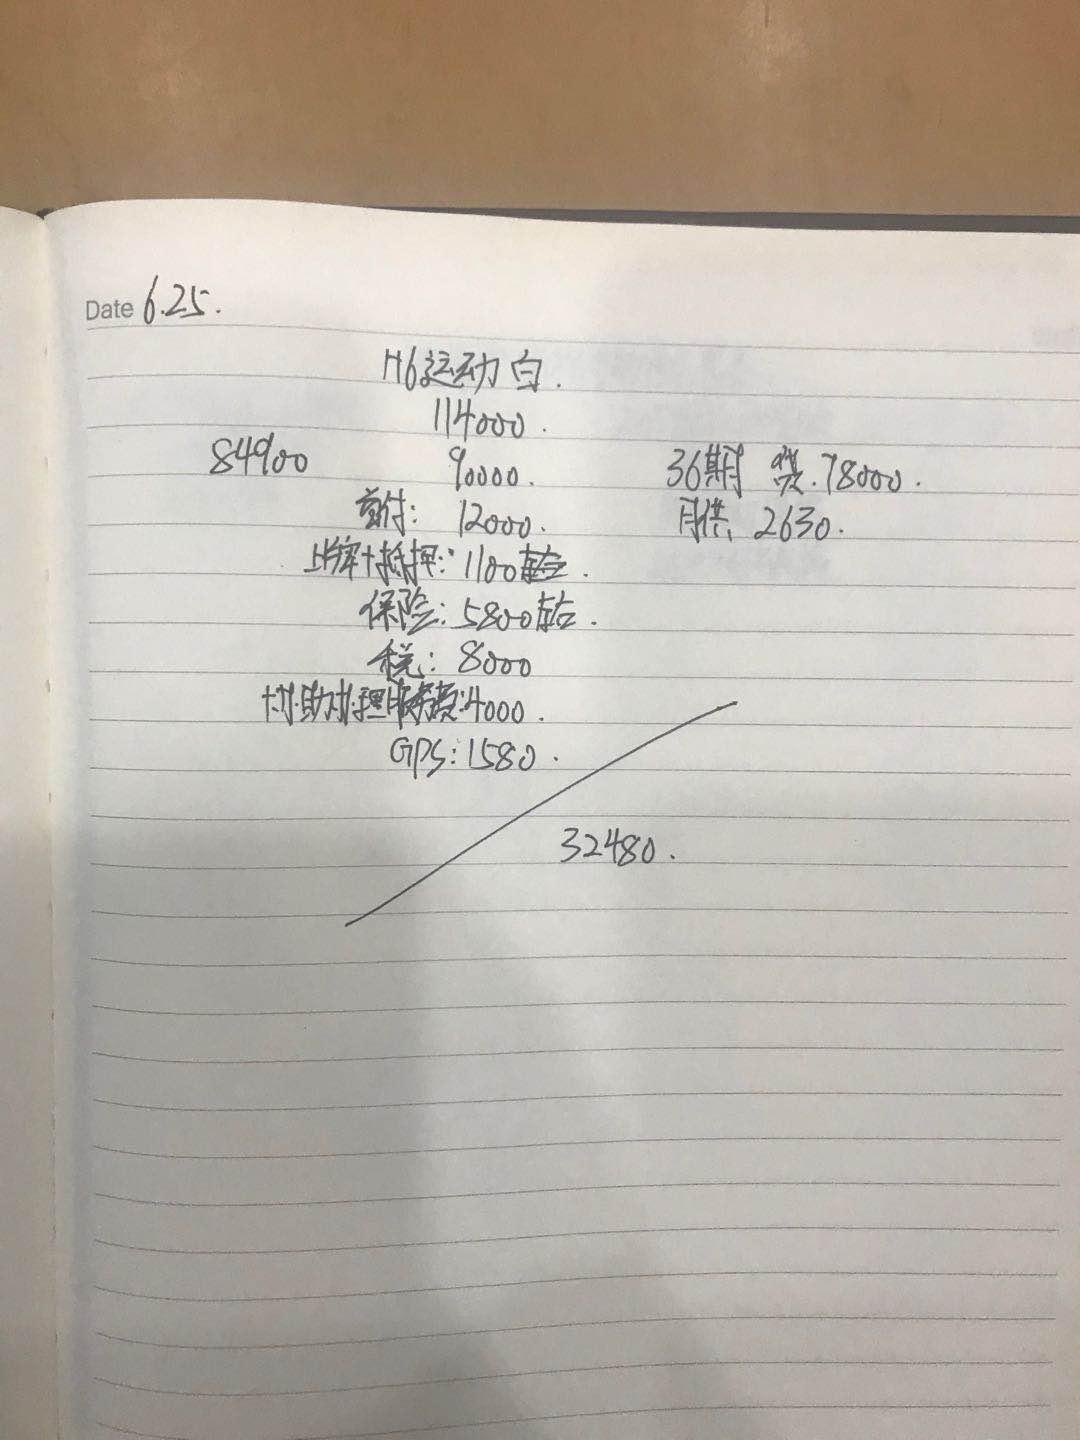 Date 6.25.
H6运动 白.
114000.
84900 90000. 36期 贷.78000.
首付: 12000. 月供: 2630.
上牌+抵押: 1100左右.
保险: 5800左右.
税: 8000
协助办理服务费: 4000.
GPS: 1580.
32480.